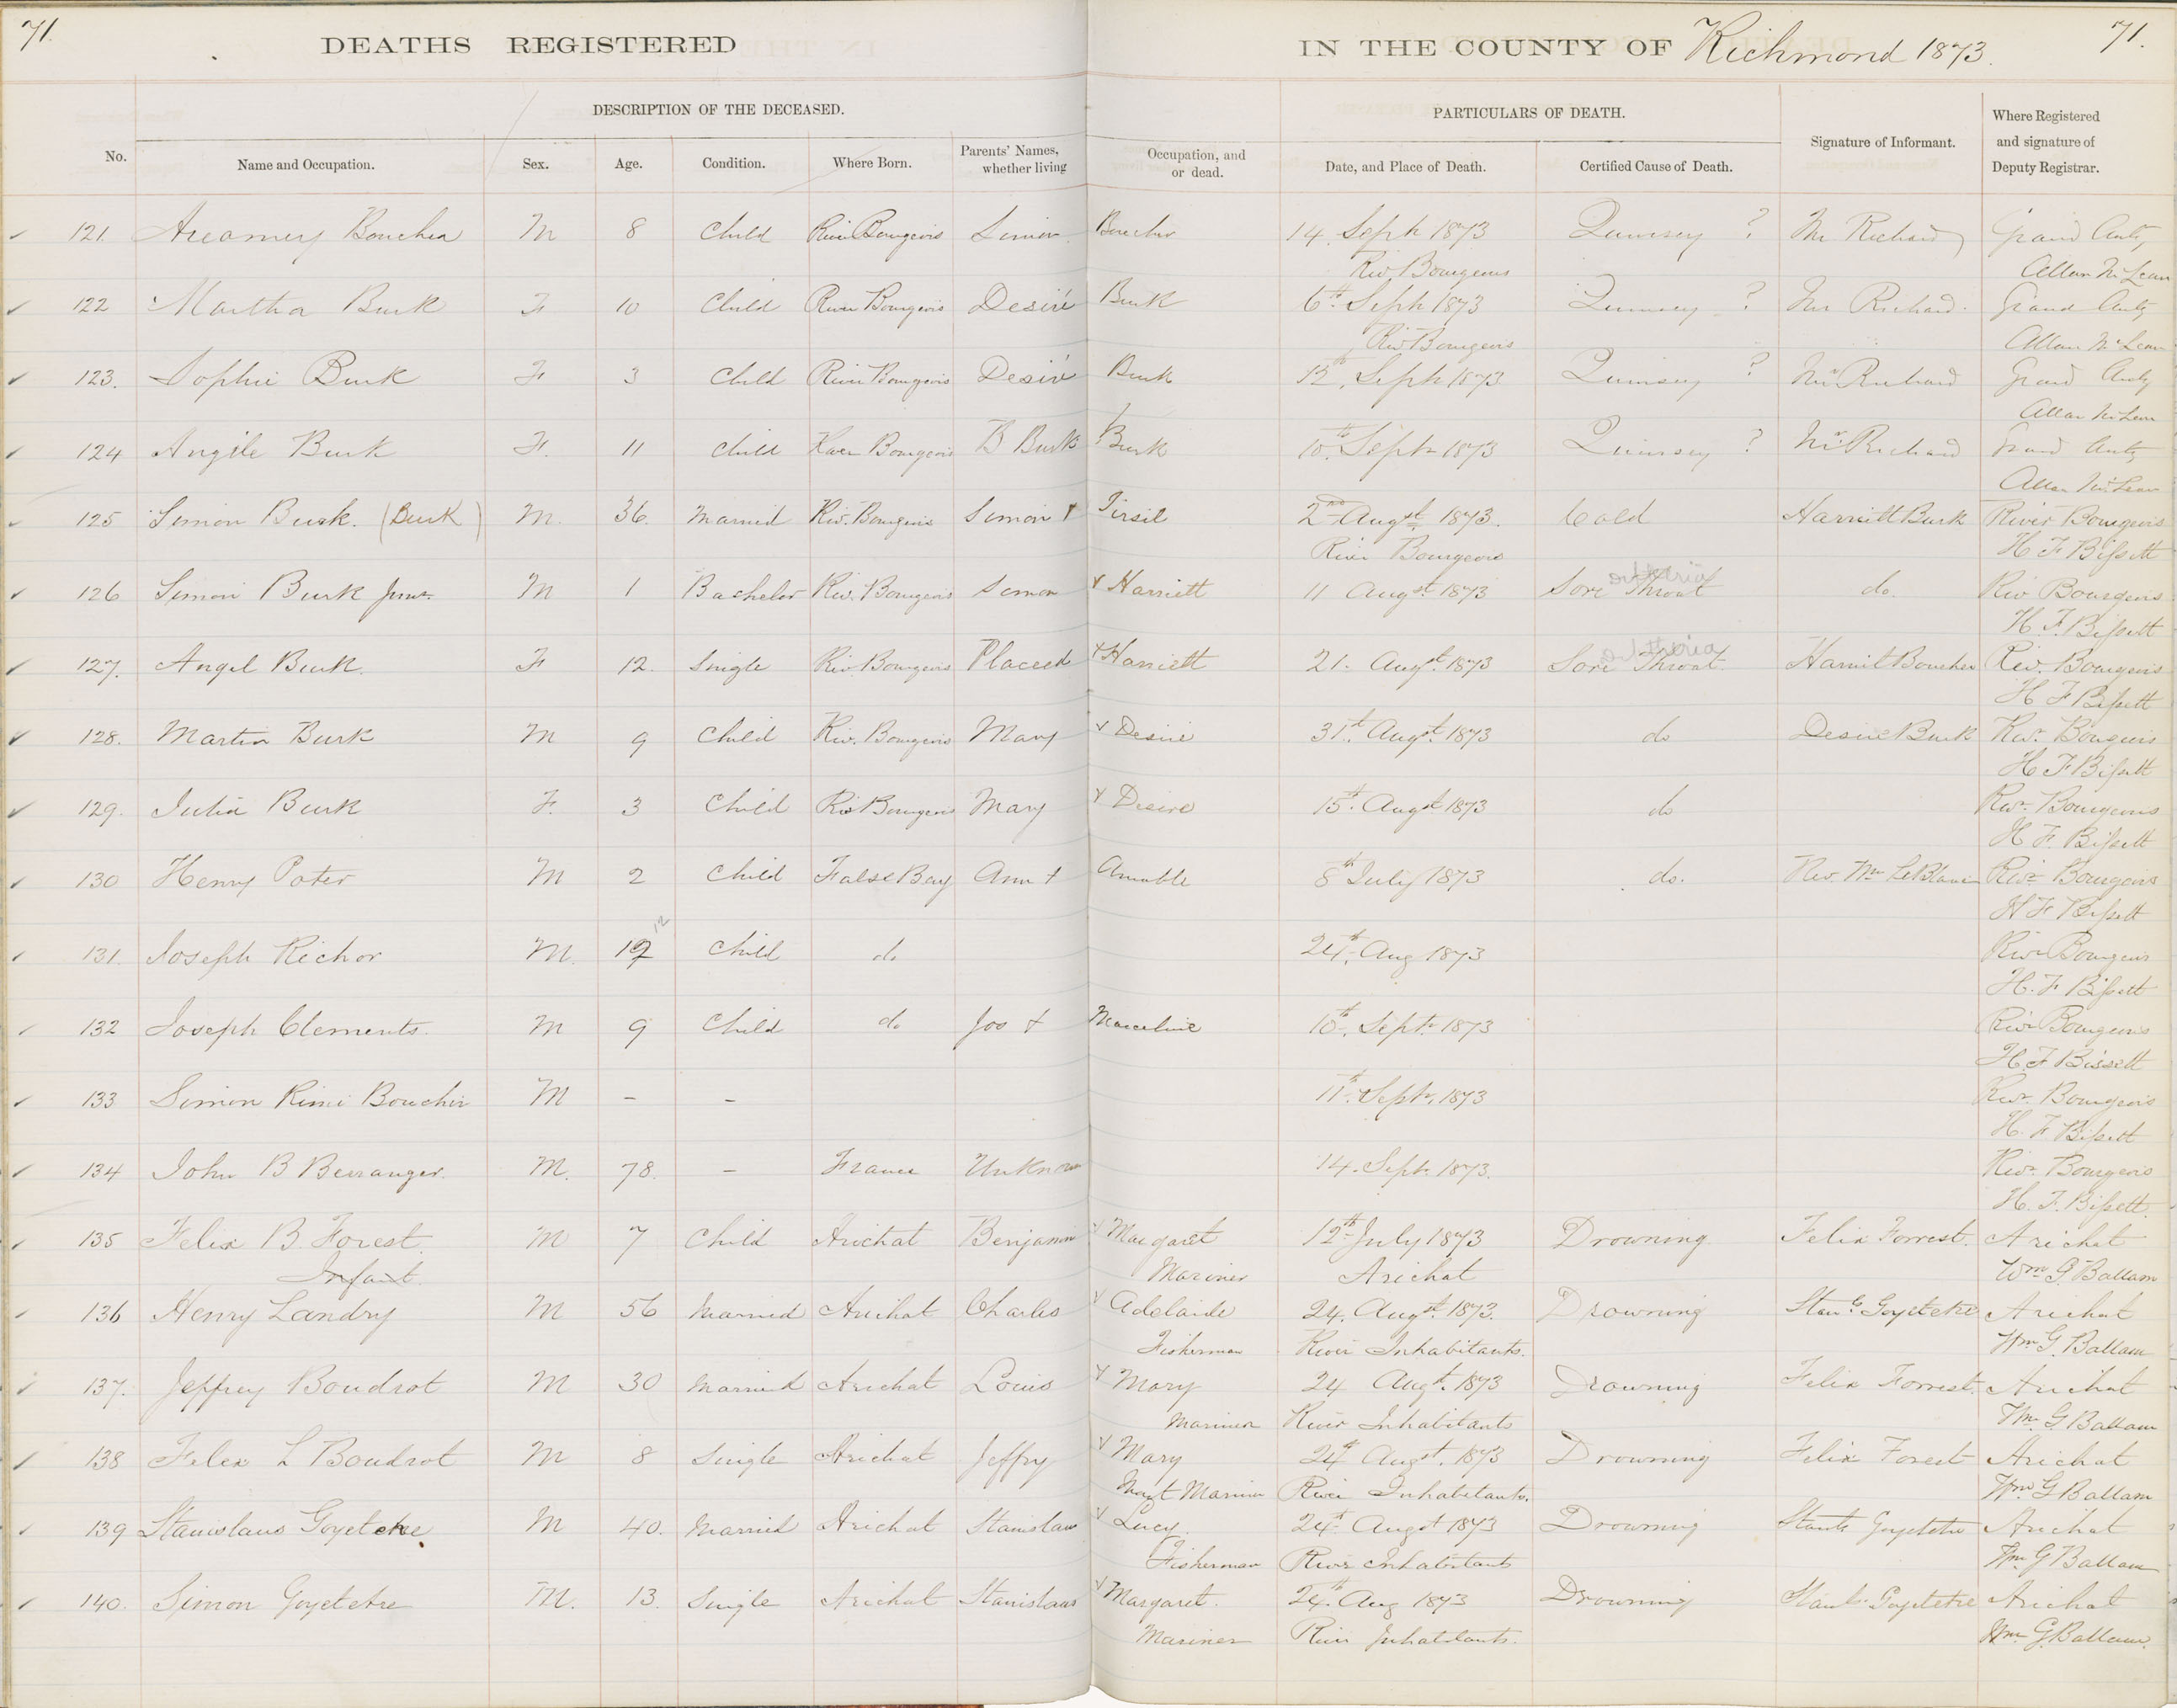 71. DEATHS REGISTERED IN THE COUNTY OF Richmond 1873. 71.
DESCRIPTION OF THE DECEASED. PARTICULARS OF DEATH.
No. Name and Occupation. Sex. Age. Condition. Where Born. Parents' Names, whether living Occupation, and or dead. Date, and Place of Death. Certified Cause of Death. Signature of Informant. Where Registered and signature of Deputy Registrar.
121. Boucher M 8 Child River Bourgeois Simon Boucher 14 Sept 1873 Quinsey ? Mr Richard Grand Ants,
Riv. Bourgeois Allan McLean
122 Martha Burk F 10 Child River Bourgeois Desiré Burk 6th Sept 1873 Quinsey ? Mr Richard. Grand Ants
Riv Bourgeois Allan McLean
123. Sophie Burk F 3 Child River Bourgeois Desiré Burk 12th Sept 1873 Quinsey ? Mr Richard Grand Ants
Allan McLean
124 Angile Burk F. 11 Child River Bourgeois B Burk Burk 10th Sept 1873 Quinsey ? Mr Richard Grand Ants
Allan McLean
125 Simon Burk. (Burk) M. 36. Married Riv. Bourgeois Simon + Tirsil 2nd Augst 1873. Cold Harriett Burk River Bourgeois
River Bourgeois H F Bissett
126 Simon Burk Junr. M 1 Bachelor Riv. Bourgeois Simon + Harriett 11 Augst 1873 Sore Throat do. Riv Bourgeois
H. F. Bissett
127. Angel Burk. F 12. Single Riv. Bourgeois Placeed + Harriett 21. Augst. 1873 Sore Throat Harriet Boucher Riv. Bourgeois
H F Bissett
128. Martin Burk M 9 Child Riv. Bourgeois Mary + Desire 31st. Augst. 1873 do Desire Burk Riv. Bourgeois
H F Bissett
129. Julia Burk F. 3 Child Riv Bourgeois Mary + Desire 15th. Augst 1873 do Rivr. Bourgeois
H F. Bissett
130 Henry Poter M 2 Child False Bay Ann + Amable 8th July 1873 do. Rev. Mr LeBlanc Rivr Bourgeois
H F Bissett
131. Joseph Richor M. 12 12 Child do 24th. Aug 1873 Rivr Bourgeois
H. F Bissett
132 Joseph Clements. M 9 Child do Jos + Marceline 10th. Sept. 1873 Rivr Bourgeois
H F Bissett
133 Simon Rimi Boucher M – – 11th. Sept. 1873 Rivr. Bourgeois
H. F Bissett
134 John B Berranger. M. 78. – France Unknown 14. Sept. 1873. Rivr. Bourgeois
H. F. Bissett.
135 Felix B Forest. M 7 Child Arichat Benjamin + Margaret 12th July 1873 Drowning Felix Forrest. Arichat
Infant. Mariner Arichat Wm G Ballam
136 Henry Landry M 56 Married Arichat Charles + Adelaide 24. Augst. 1873. Drowning Stans. Goyetche Arichat
Fisherman River Inhabitants. Wm G. Ballam
137. Jeffrey Boudrot M 30 Married Arichat Louis + Mary 24 Augt. 1873 Drowning Felix Forrest. Arichat
Mariner River Inhabitants Wm G Ballam
138 Felix L Boudrot M 8 Single Arichat Jeffry + Mary 24th Augst. 1873 Drowning Felix Forest Arichat
Mast Mariner River Inhabitants. Wm G Ballam
139 Stanislaus Goyetche M 40. Married Arichat Stanislaus + Lucy. 24th. Augst 1873 Drowning Stans Goyetche Arichat
Fisherman River Inhabitants Wm G Ballam
140. Simon Goyetche M. 13. Single Arichat Stanislaus + Margaret. 24th. Aug 1873 Drowning Stans. Goyetche Arichat
Mariner River Inhabitants. Wm G. Ballam.